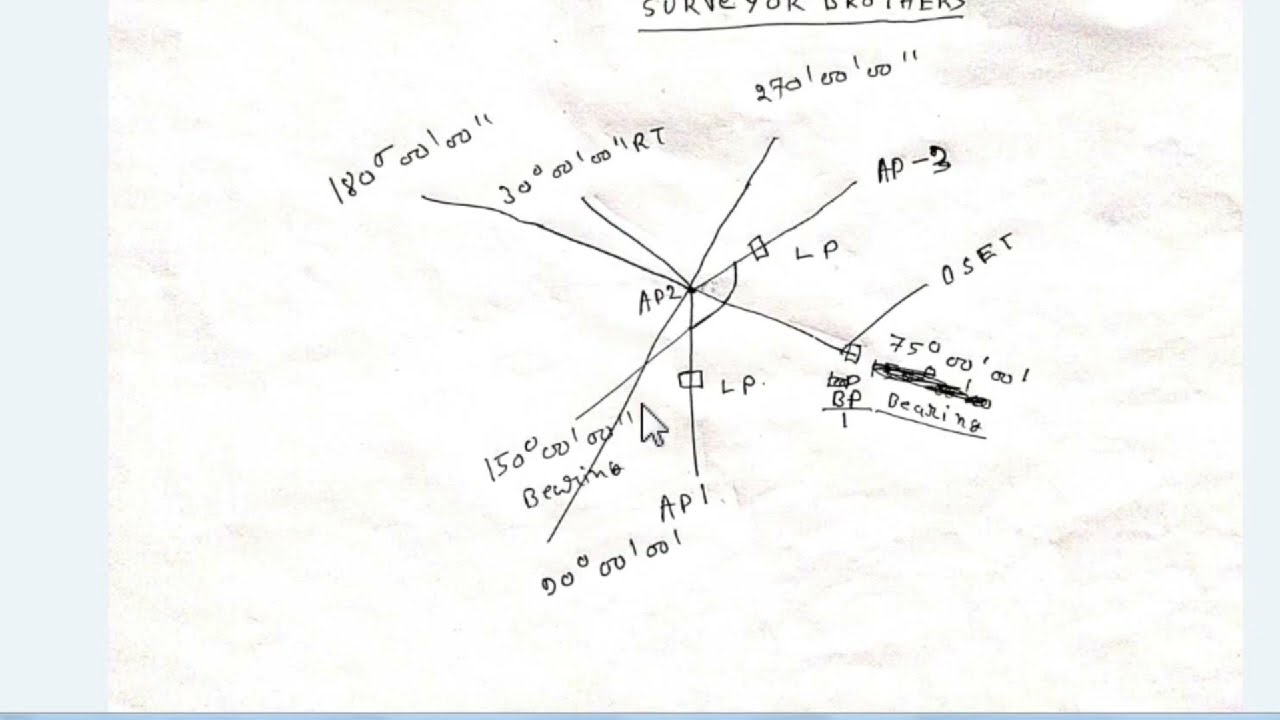 SURVEYOR BROTHERS
270'00'00"
180°00'00"
30°00'00"RT
AP-3
LP
OSET
AP2
75°00'00'
LP.
BP
1
Bearing
150°00'00"
Bearing
AP1.
90°00'00'